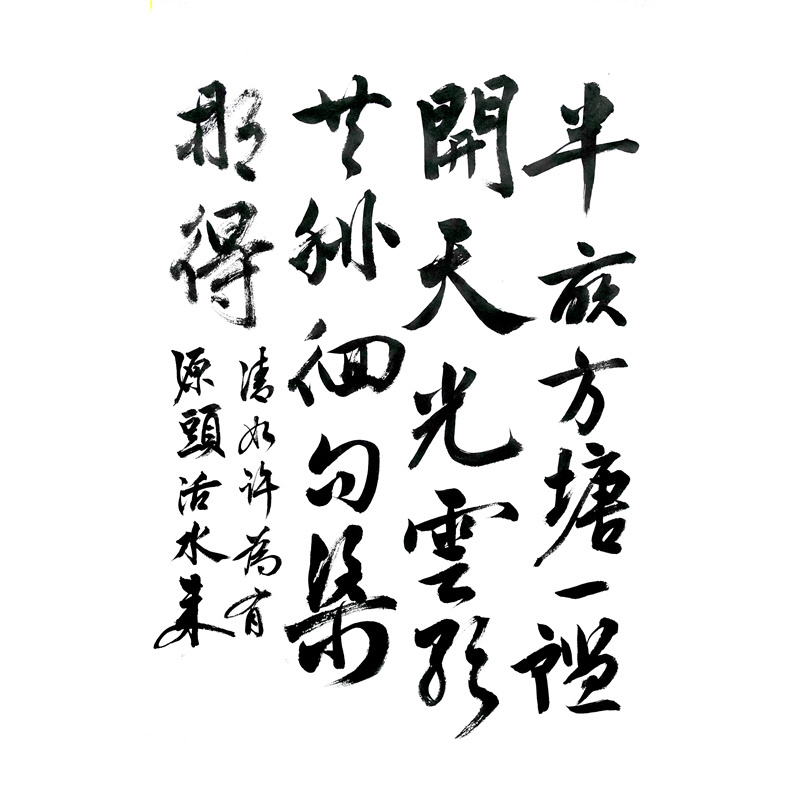 半畝方塘一鑑
開天光雲影
共徘徊問渠
那得
清如許為有
源頭活水來